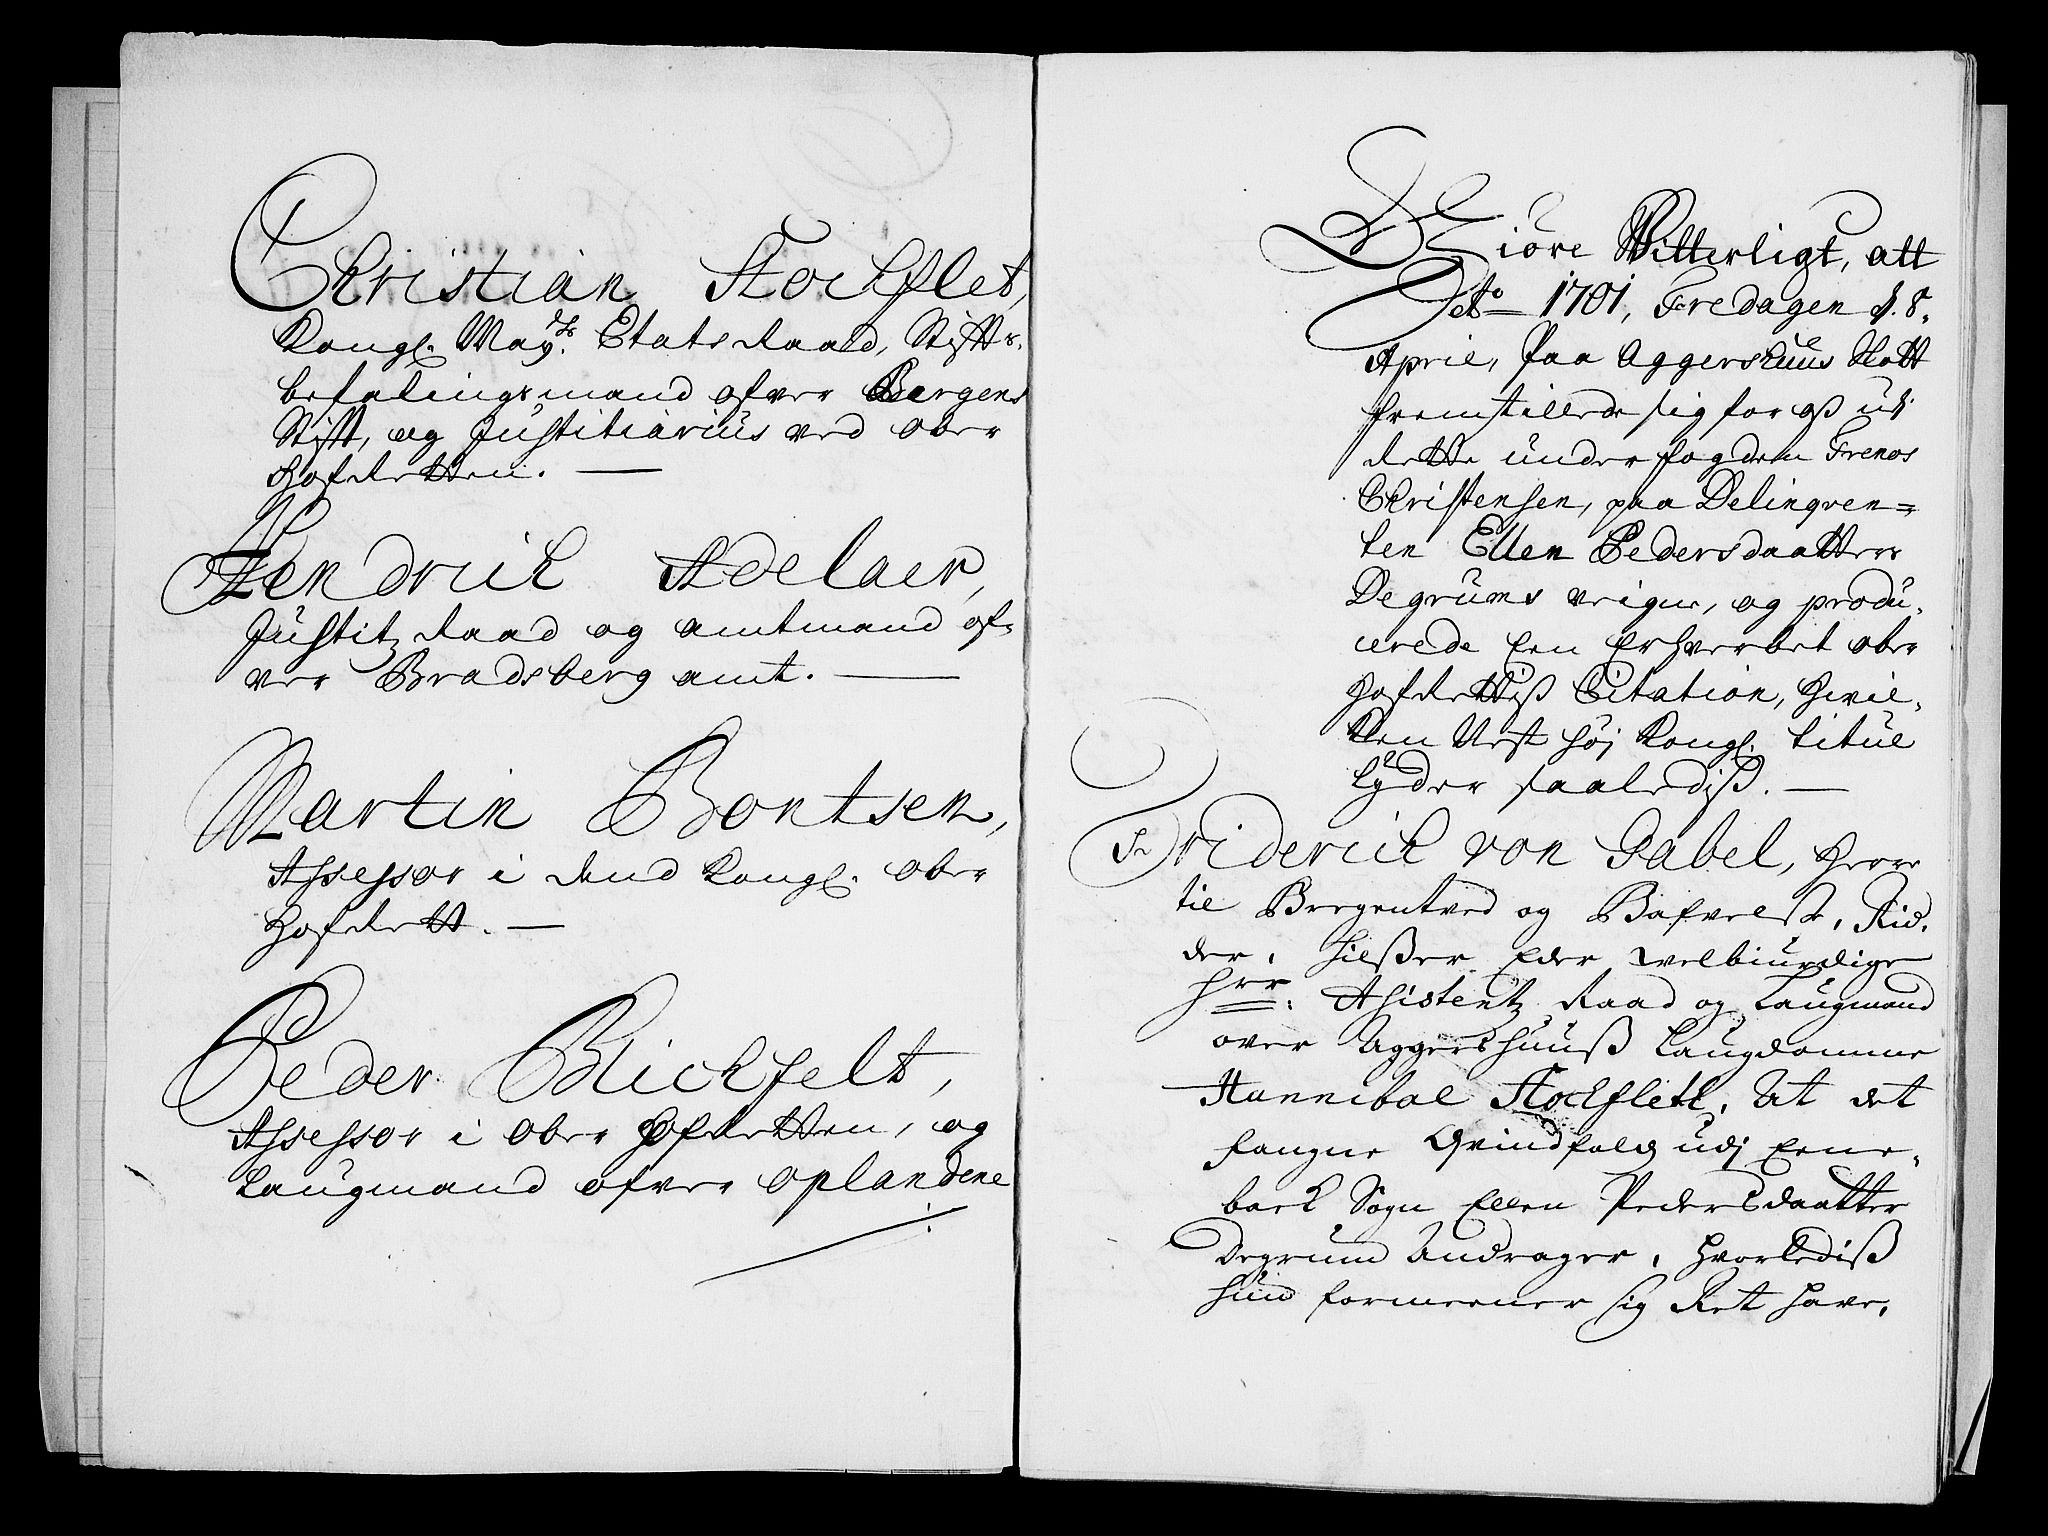 Christian Stockflet,
Kongl. May.ts Etats Raad, Stiffts-
befalingsmand ofver Bergens
Stift, og Justitiarius ved ober
Hofretten.
Hendrick Adelaer,
Justitz Raad og amtmand of-
ver Bradsberg amt.
Martin Bontsen,
Assessor i dend Kongl. ober
Hofrett.
Peder Blichfelt,
Assessor i Ober Hofretten, og
Laugmand ofver Oplandene
Giöre Witterligt, att
Ao 1701, Fredagen d. 8.
April, paa Aggershuus Slott
fremstillede sig for oß udj
Rette underfogden
Christensen, paa Delinqven=
ten Ellen Pedersdaatters
Degrums veigne, og produ-
cerede een Erhvervet ober
Hofrettiß Citation, hvil-
ken Nest høj Kongl. titul
lyder saalediß.
Friderich von Gabel, Herre
til Bregentved og Bafvelse, Rid-
der, hilßer Eder welbiurdige
Hrr: Assistentz Raad og Laugmand
over Aggershuuß Laugdomme
Hannibal Stockfleth, At det
fangne Qvindfolck udj Eene-
back Sogn Ellen Pedersdaatter
Degrum Andrager, hvorlediß
hun formeener sig Ret have,